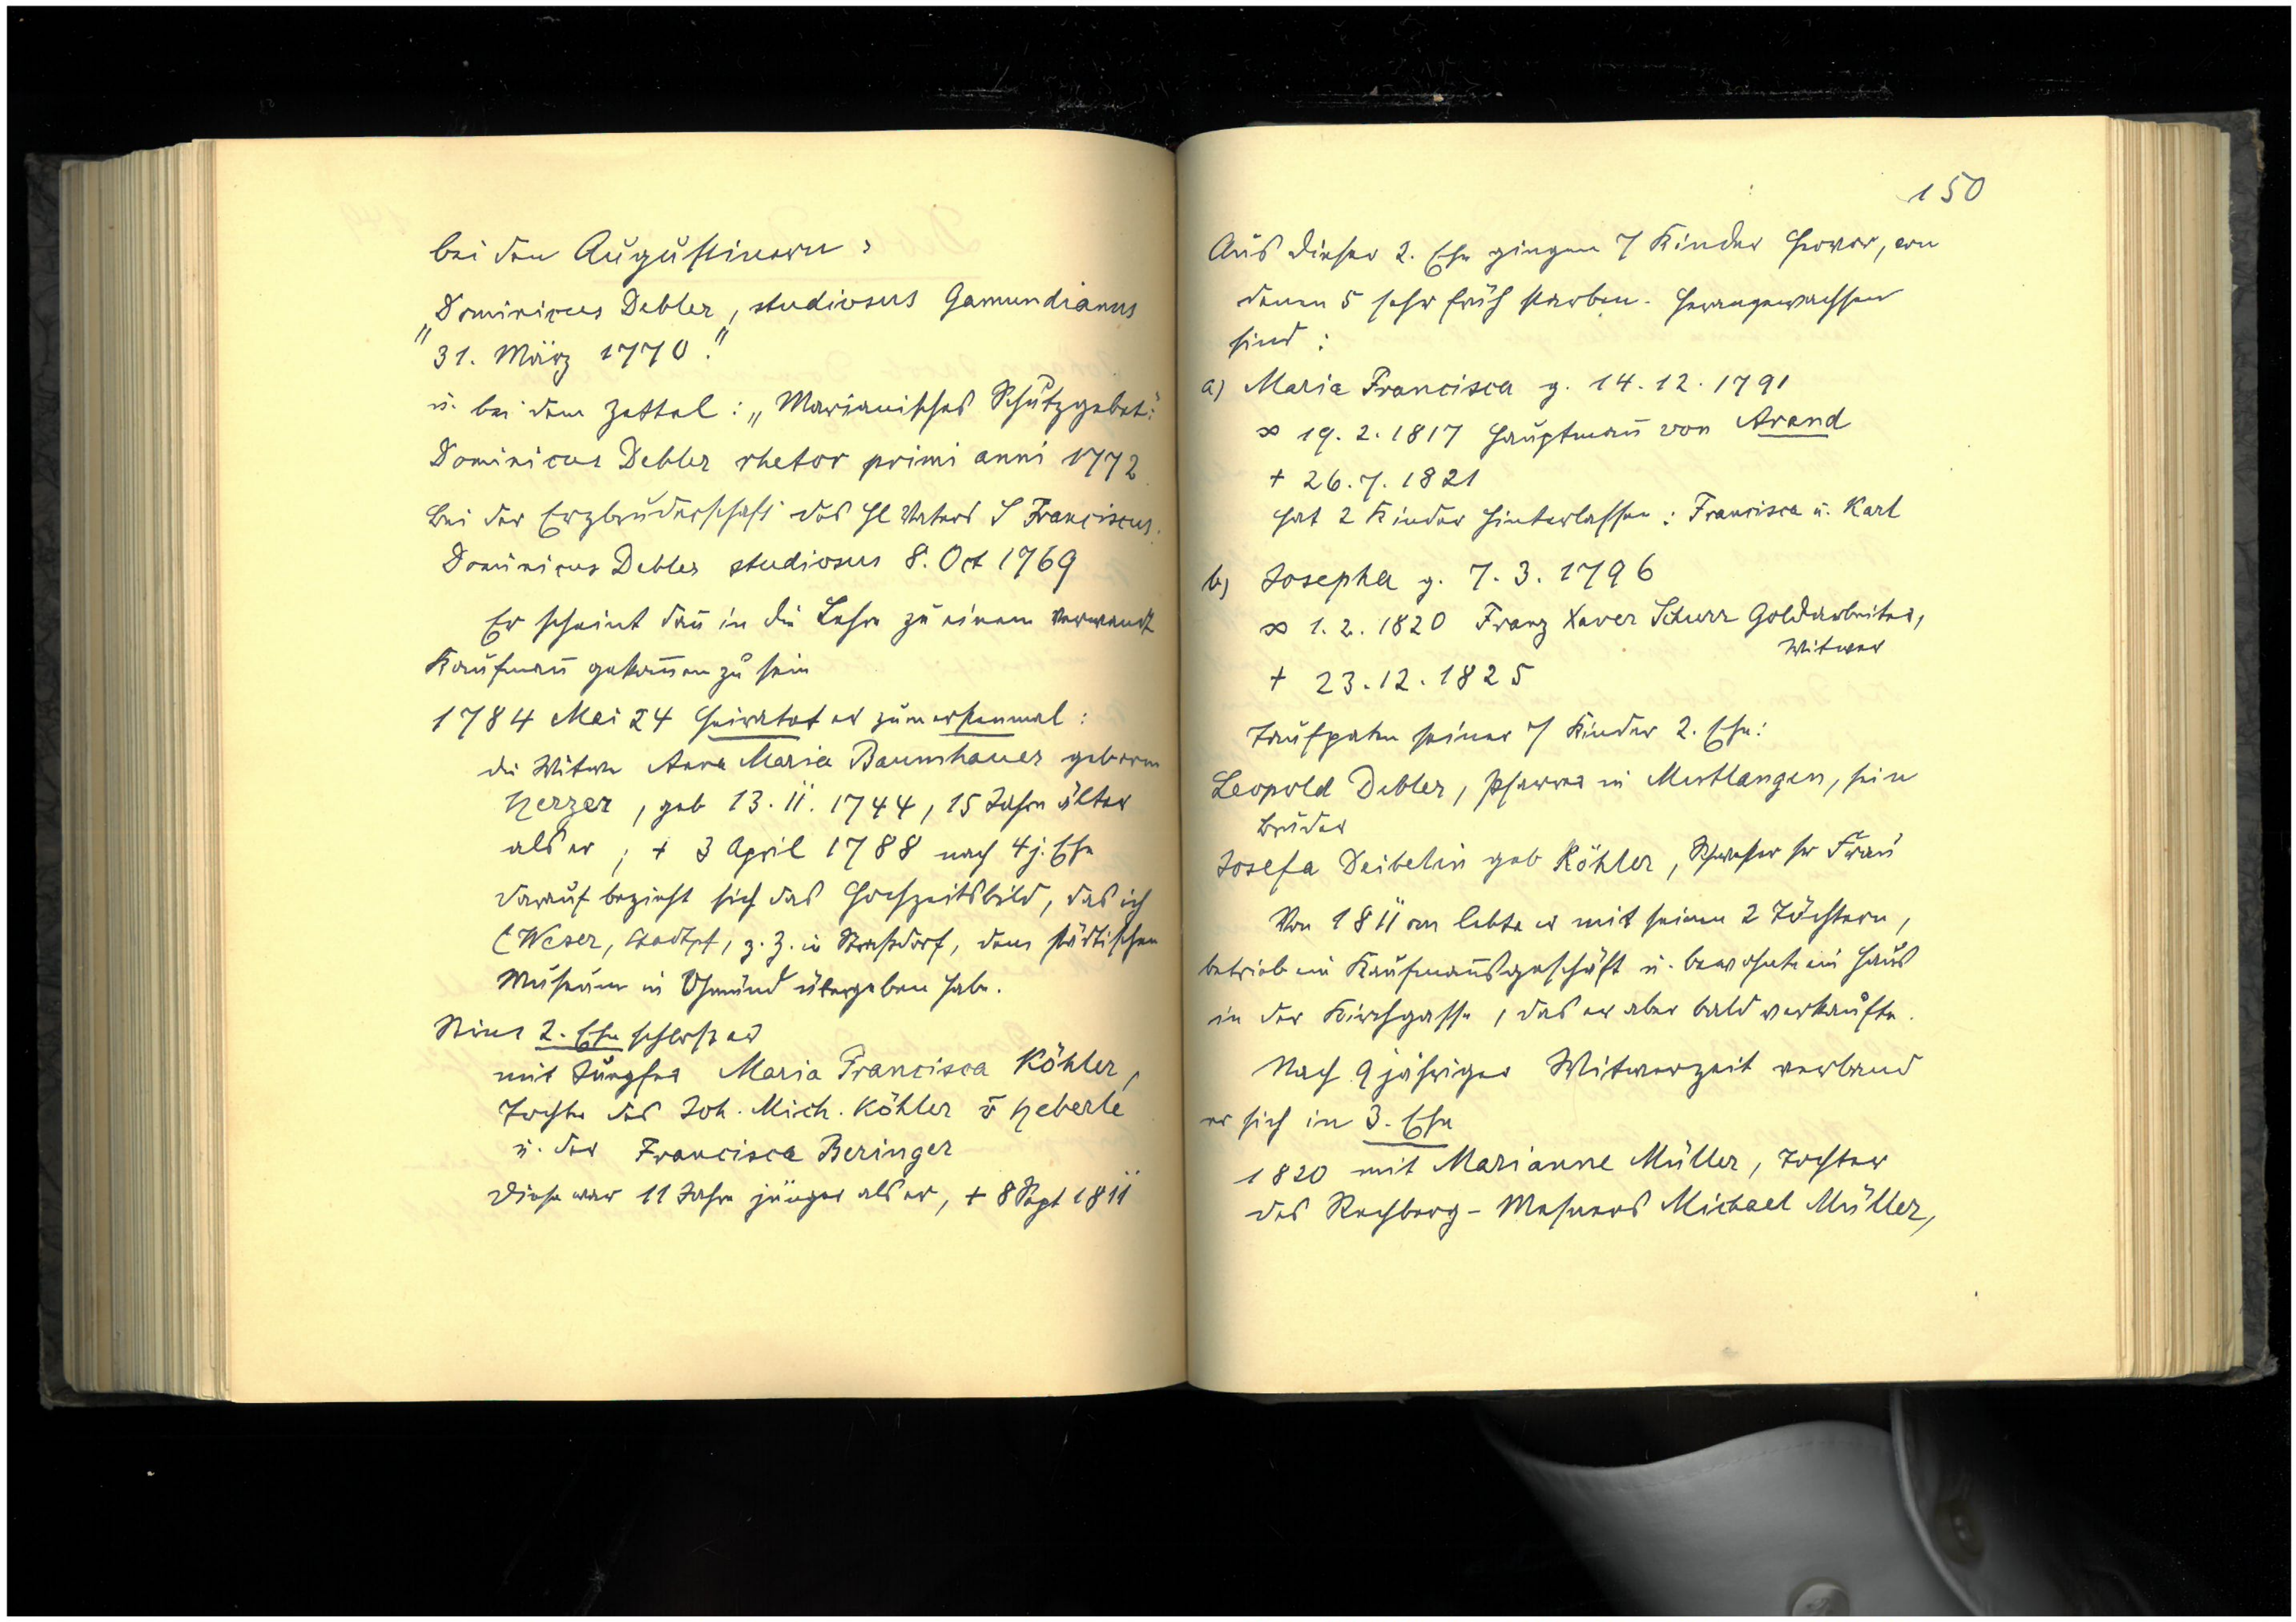 bei den Augustinern:
„Dominicus Debler, studiosus Gamundianus
31. März 1770."
u. bei dem Zettel: „Marianisches Schutzgebet":
Dominicus Debler rhetor primi anni 1772
Bei der Erzbruderschaft des hl Vaters S Franciscus.
Dominicus Debler studiosus 8. Oct 1769
Er scheint dan̄ in die Lehre zu einem verwandt
Kaufman̄ gekom̄en zu sein
1784 Mai 24 heiratet er zum erstenmal:
die Witwe Anna Maria Baumhauer geboren
Herzer, geb 13. 11. 1744, 15 Jahre älter
als er; + 3 April 1788 nach 4 j. Ehe
darauf bezieht sich das Hochzeitsbild, das ich
(Weser, Stadtpf, z. Z. in Straßdorf, dem städtischen
Museum in Gmünd übergeben habe.
Seine 2. Ehe schloß er
mit Jungfer Maria Francisca Köhler,
Tochter des Joh. Mich. Köhler v Heberle
u. der Francisca Beringer
Diese war 11 Jahre jünger als er, + 8 Sept 1811
150
Aus dieser 2. Ehe gingen 7 Kinder hervor, von
denen 5 sehr früh starben. Herangewachsen
sind:
a) Maria Francisca g. 14. 12. 1791
∞ 19. 2. 1817 Hauptman̄ von Arand
+ 26. 7. 1821
hat 2 Kinder hinterlassen: Francisca u. Karl
b) Josepha g. 7. 3. 1796
∞ 1. 2. 1820 Franz Xaver Schurr Goldarbeiter,
Witwer
+ 23. 12. 1825
Taufpaten seiner 7 Kinder 2. Ehe:
Leopold Debler, Pfarrer in Mutlangen, sein
Bruder
Josefa Deibelin geb Köhler, Schwester sr Frau
Von 1811 an lebte er mit seinen 2 Töchtern,
betrieb ein Kaufman̄sgeschäft u. bewohnte ein Haus
in der Kirchgasse, das er aber bald verkaufte.
Nach 9 jähriger Witwerzeit verband
er sich in 3. Ehe
1820 mit Marianne Müller, Tochter
des Rechberg-Mesners Michael Müller,